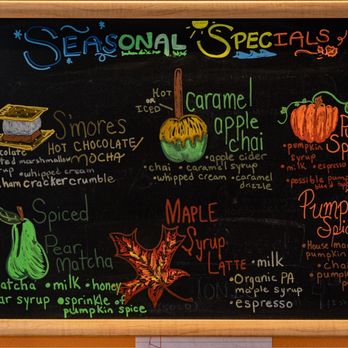 SEASONAL SPECIALS
S'mores
HOT CHOCOLATE/
MOCHA
marshmallow
• whipped cream
cracker crumble
HOT
OR
ICED
caramel
apple
chai
• apple cider
• chai • caramel syrup
• whipped cream • caramel
drizzle
• pumpkin
syrup
• milk • espresso
• possible pump
Spiced
Pear
Matcha
• milk • honey
syrup • sprinkle of
pumpkin spice
MAPLE
Syrup
LATTE • milk
• Organic PA
maple syrup
• espresso
Pump
Spi
• House
pumpkin
• chai
• pum